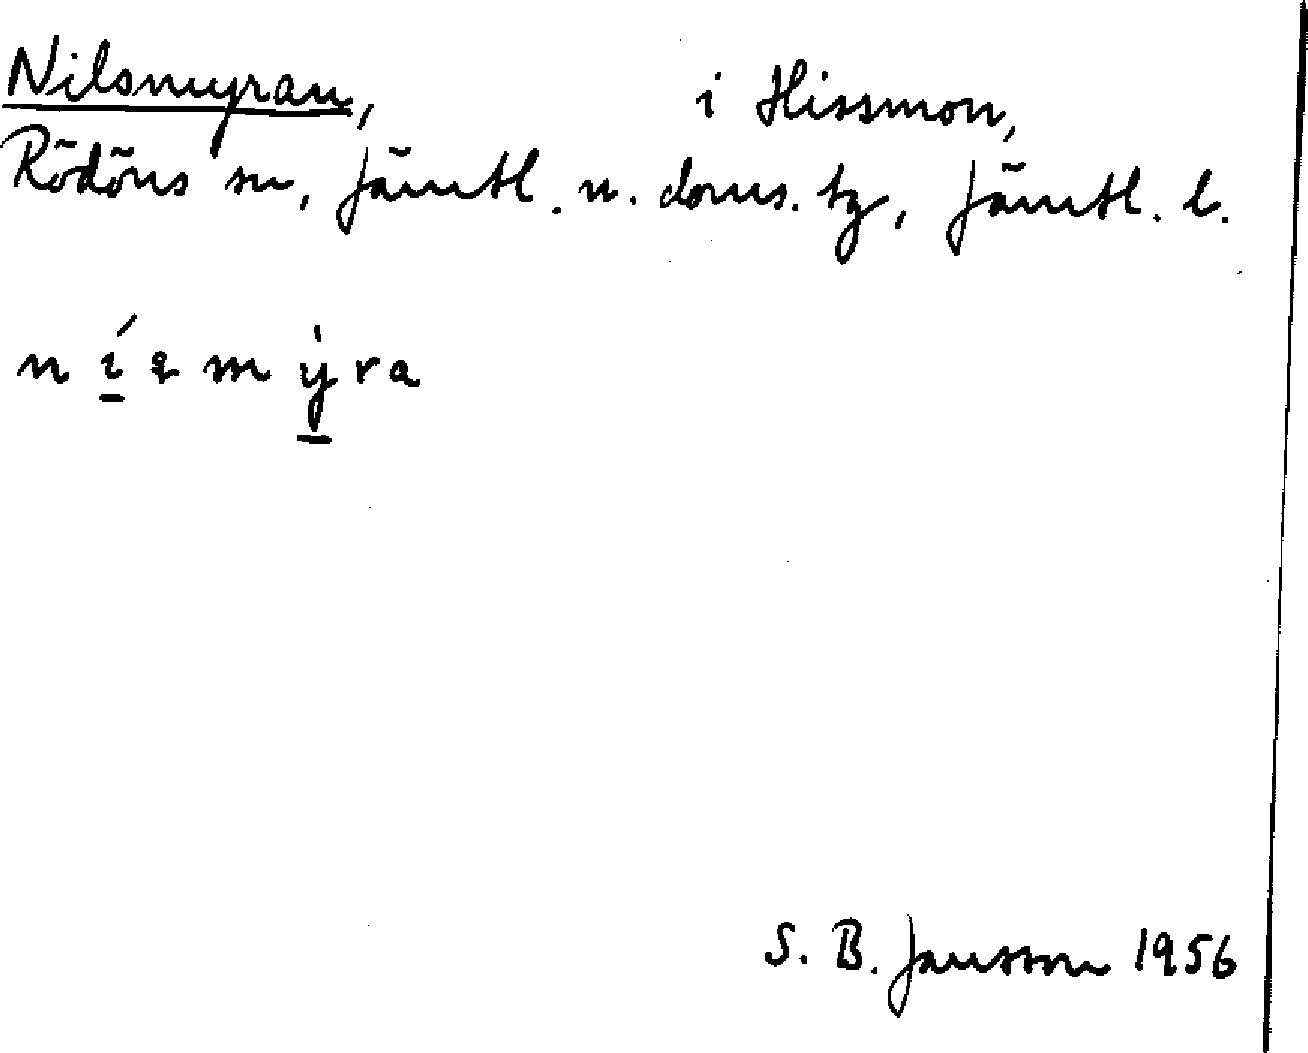 Nilsmyran, i Hissmon,
Rödöns sn, Jämtl. n. doms. tg, Jämtl. l.
S. B. Jansson 1956